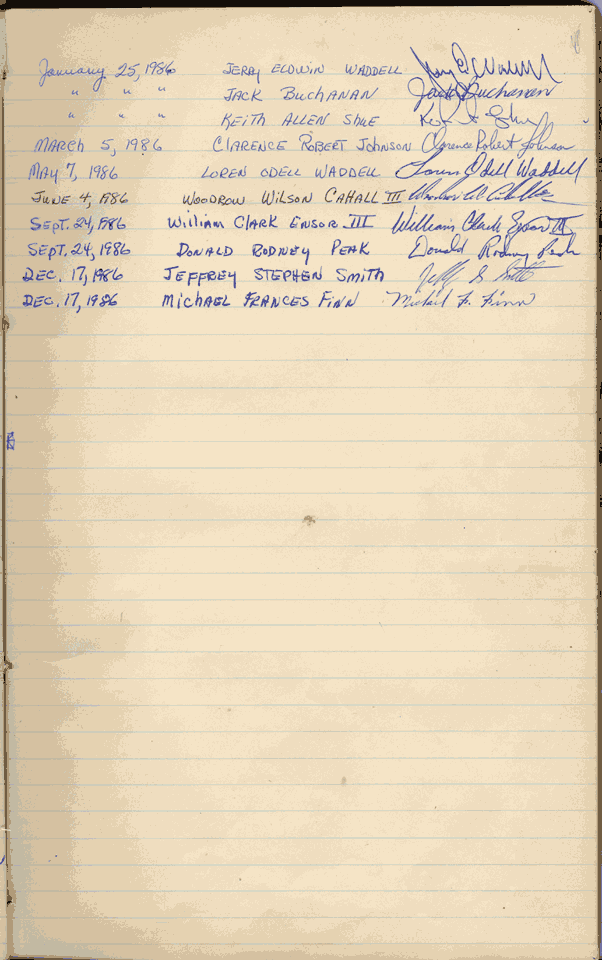 January 25, 1986 JERRY ELDWIN WADDELL
" " " JACK BUCHANAN Jack Buchanan
" " " KEITH ALLEN SHUE
MARCH 5, 1986 CLARENCE ROBERT JOHNSON Clarence Robert Johnson
MAY 7, 1986 LOREN ODELL WADDELL Loren Odell Waddell
JUNE 4, 1986 WOODROW WILSON CAHALL III
SEPT. 24, 1986 William CLARK ENSOR III William Clark Ensor III
SEPT. 24, 1986 DONALD RODNEY PEAK Donald Rodney Peak
DEC. 17, 1986 JEFFREY STEPHEN SMITH
DEC. 17, 1986 MICHAEL FRANCES FINN Michael F. Finn